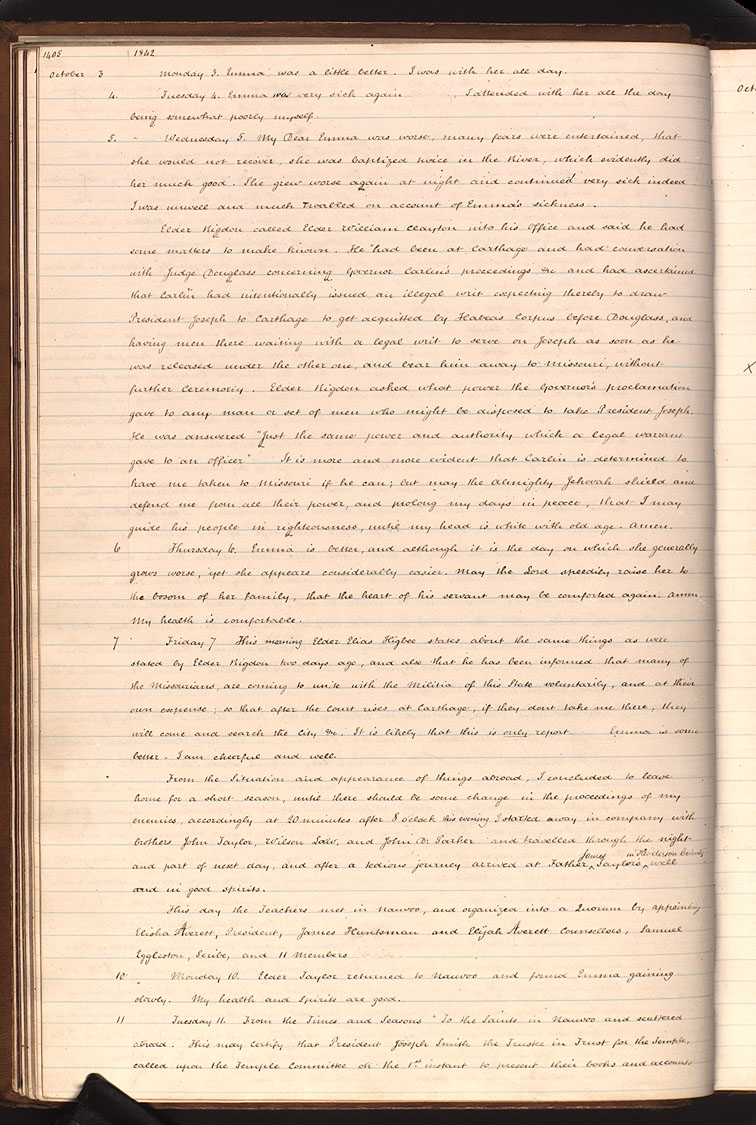 1405 1842
October 3 Monday 3. Emma was a little better. I was with her all day.
4. Tuesday 4. Emma was very sick again , I attended with her all the day
being somewhat poorly myself.
5. Wednesday 5. My Dear Emma was worse, many fears were entertained, that
she would not recover, she was baptized twice in the River, which evidently did
her much good. She grew worse again at night and continued very sick indeed
I was unwell and much troubled on account of Emma's sickness.
Elder Rigdon called Elder William Clayton into his Office and said he had
some matters to make known. He had been at Carthage and had conversation
with Judge Douglass concerning Governor Carlin's proceedings &c and had ascertained
that Carlin had intentionally issued an illegal writ expecting thereby to draw
President Joseph to Carthage to get acquitted by Habeas Corpus before Douglass, and
having men there waiting with a legal writ to serve on Joseph as soon as he
was released under the other one, and bear him away to Missouri, without
further ceremony. Elder Rigdon asked what power the Governor's proclamation
gave to any man or set of men who might be disposed to take President Joseph.
He was answered "Just the same power and authority which a legal warrant
gave to an officer" It is more and more evident that Carlin is determined to
have me taken to Missouri if he can; but may the Almighty Jehovah shield and
defend me from all their power, and prolong my days in peace, that I may
guide his people in righteousness, until my head is white with old age. Amen.
6 Thursday 6. Emma is better, and although it is the day on which she generally
grows worse, yet she appears considerably easier. May the Lord speedily raise her to
the bosom of her family, that the heart of his servant may be comforted again. Amen.
My health is comfortable.
7 Friday 7 This morning Elder Elias Higbee states about the same things as were
stated by Elder Rigdon two days ago, and also that he has been informed that many of
the Missourians, are coming to unite with the Militia of this State voluntarily, and at their
own expense; so that after the court rises at Carthage, if they dont take me there, they
will come and search the City &c. It is likely that this is only report. Emma is some
better. I am cheerful and well.
From the situation and appearance of things abroad, I concluded to leave
home for a short season, until there should be some change in the proceedings of my
enemies, accordingly at 20 minutes after 8 o'clock this evening I started away in company with
brothers John Taylor, Wilson Law, and John D. Parker and travelled through the night
and part of next day, and after a tedious journey arrived at Father James Taylor's in Henderson County well
and in good spirits.
This day the Teachers met in Nauvoo, and organized into a Quorum by appointing
Elisha Averett, President, James Huntsman and Elijah Averett Counsellors, Samuel
Eggleston, Scribe, and 11 members
10 Monday 10. Elder Taylor returned to Nauvoo and found Emma gaining
slowly. My health and spirits are good.
11 Tuesday 11. From the Times and Seasons "To the Saints in Nauvoo and scattered
abroad. This may certify that President Joseph Smith the Trustee in Trust for the Temple,
called upon the Temple Committee on the 1st instant to present their books and accounts
Oct
X